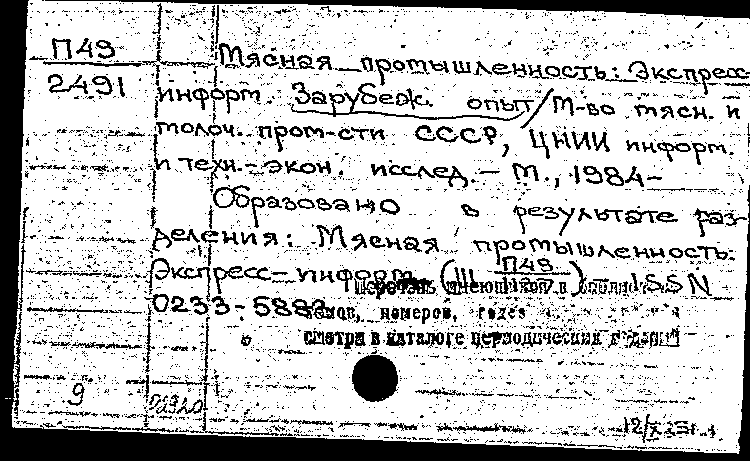 П49
2491
Мясная промышленность: Экспресс-
информ. Зарубеж. опыт / М-во мясн. и
молоч. пром-сти СССР, ЦНИИ информ.
и техн.-экон. исслед. — М., 1984–
Образовано в результате раз-
деления: Мясная промышленность.
Экспресс-информ. (III П49) – ISSN
0233-5883
имеющихся в
томов, номеров, годов
смотри в каталоге периодических изданий
9